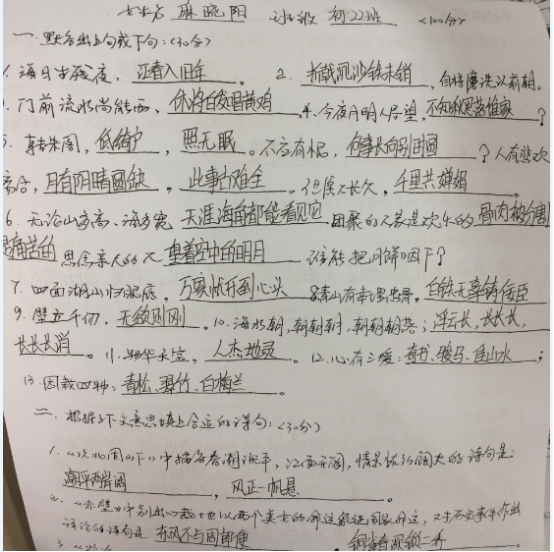 姓名 麻晓阳 班级 初二2班 <100分>
一、默写出上句或下句:<30分>
1. 海日生残夜, 江春入旧年。 2. 折戟沉沙铁未销, 自将磨洗认前朝。
门前流水尚能西, 休将白发唱黄鸡 4. 今夜月明人尽望, 不知秋思落谁家?
5. 转朱阁, 低绮户, 照无眠。不应有恨, 何事长向别时圆?人有悲欢
离合, 月有阴晴圆缺, 此事古难全。但愿人长久, 千里共婵娟。
6. 无论山多高、海多宽 天涯海角都能看见它 团聚的人家是欢乐的 骨肉被分割
是痛苦的 思念亲人的人 望着空中的明月 谁能把月饼咽下?
7. 四面湖山归眼底, 万家忧乐到心头 8. 青山有幸埋忠骨, 白铁无辜铸佞臣
9. 壁立千仞, 无欲则刚。10. 海水朝,朝朝朝,朝朝朝落;浮云长,长长长,
长长长消。11. 物华天宝, 人杰地灵。12. 心有三爱:奇书、骏马、佳山水;
13. 园栽四物:青松、翠竹、白梅兰。
二、根据下文意思填上合适的诗句:<30分>
1. 《次北固山下》中描写春潮涨平,江面开阔,情景恢弘阔大的诗句是:
潮平两岸阔, 风正一帆悬。
2. 《赤壁》中 以两个美女的命运 对历史事件作出
议论的诗句是 东风不与周郎便, 铜雀春深锁二乔
3.